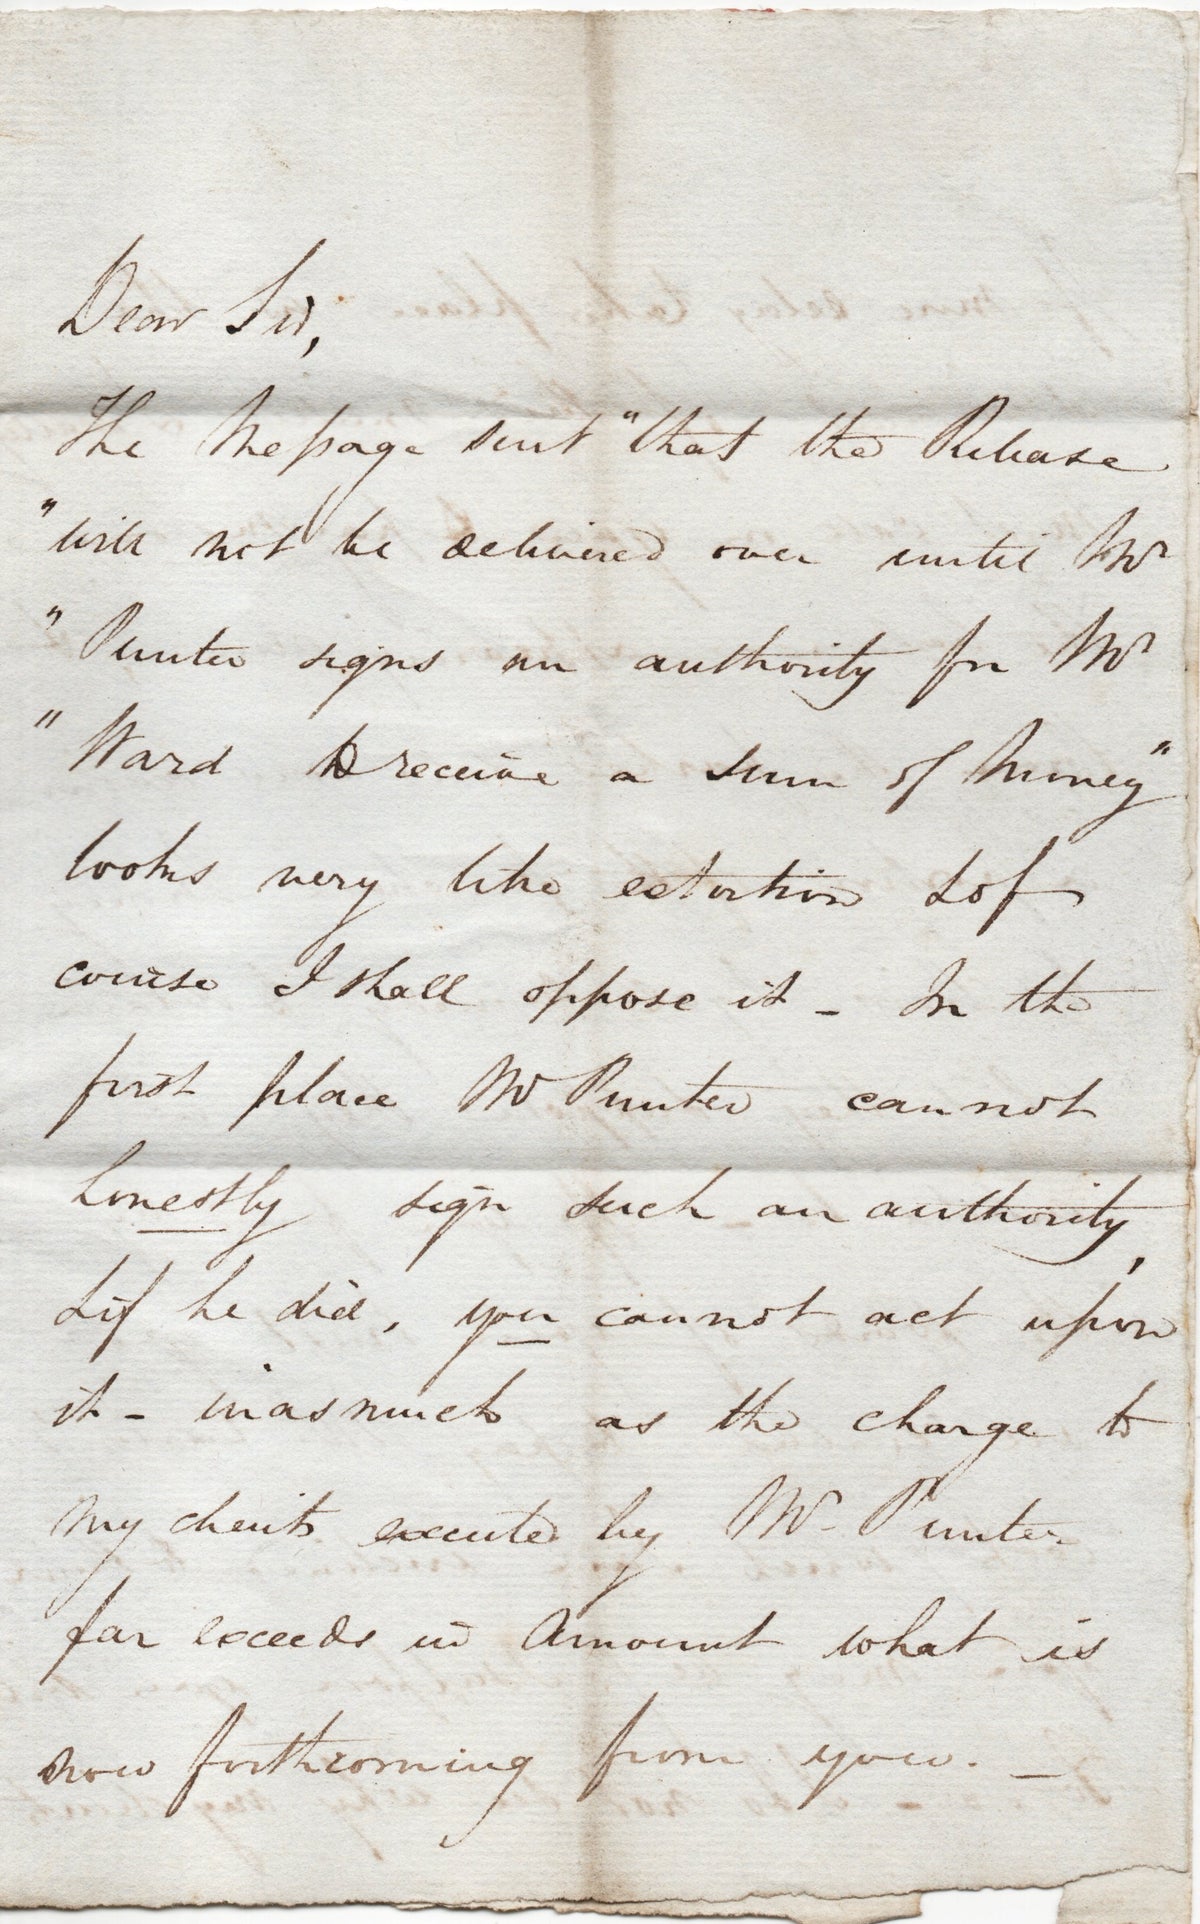 Dear Sir,
The Message sent "that the Release
"will not be delivered over until Mr
"Punter signs an authority for Mr
"Ward to receive a sum of Money"
looks very like extortion & of
course I shall oppose it - In the
first place Mr Punter cannot
honestly sign such an authority,
& if he did, you cannot act upon
it - inasmuch as the charge to
my clients executed by Mr. Punter
far exceeds in Amount what is
now forthcoming from you. -